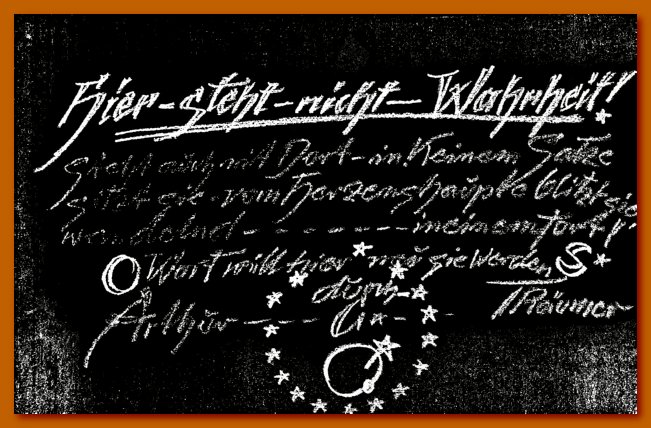 Hier-steht-nicht-Wahrheit!
steht auch nit Dort-in Keinem Satze
sitzt sie-vom Herzenshaupte blitzt sie
wandelnd - - - - - - - in einem fort!
O Wort will hier nur sie werden S
durch
Arthur - - - - TRäumer